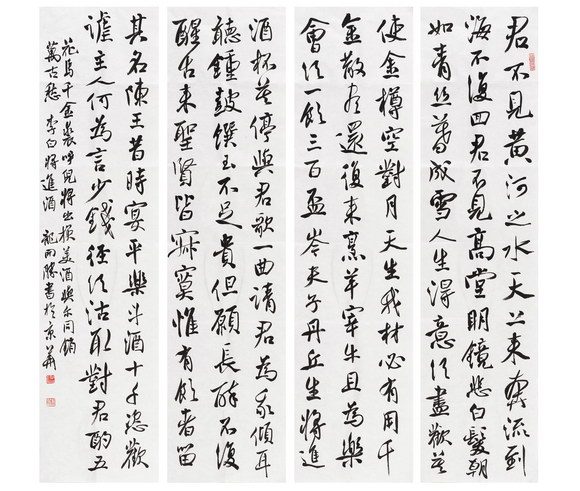 君不見黃河之水天上来奔流到
海不復回君不見高堂明鏡悲白髮朝
如青丝暮成雪人生得意須盡歡莫
使金樽空對月天生我材必有用千
金散盡還復来烹羊宰牛且為樂
會須一飲三百盃岑夫子丹丘生將進
酒杯莫停與君歌一曲請君為我傾耳
聽鍾鼓饌玉不足貴但願長醉不復
醒古来聖賢皆寂寞惟有飲者留
其名陳王昔時宴平樂斗酒十千恣歡
謔主人何為言少錢径須沽取對君酌五
花馬千金裘呼兒將出換美酒與尔同銷
萬古愁 李白將進酒 書於京華